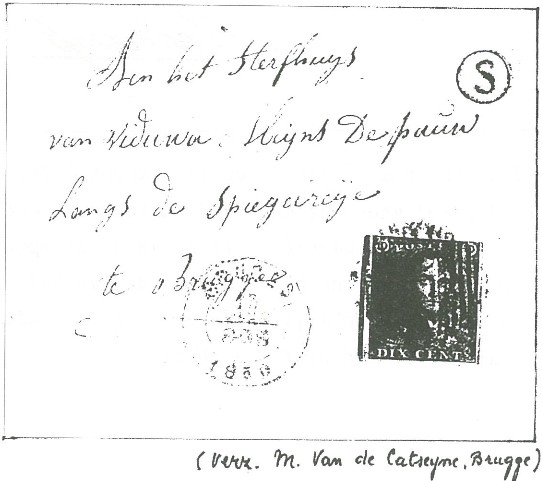 Aen het Sterfhuys
S
van Viduwa Mijns De pauw
Langs de Spiegelreije
te Brugge
1850
DIX CENT
(Verz. M. Van de Catseyne, Brugge)